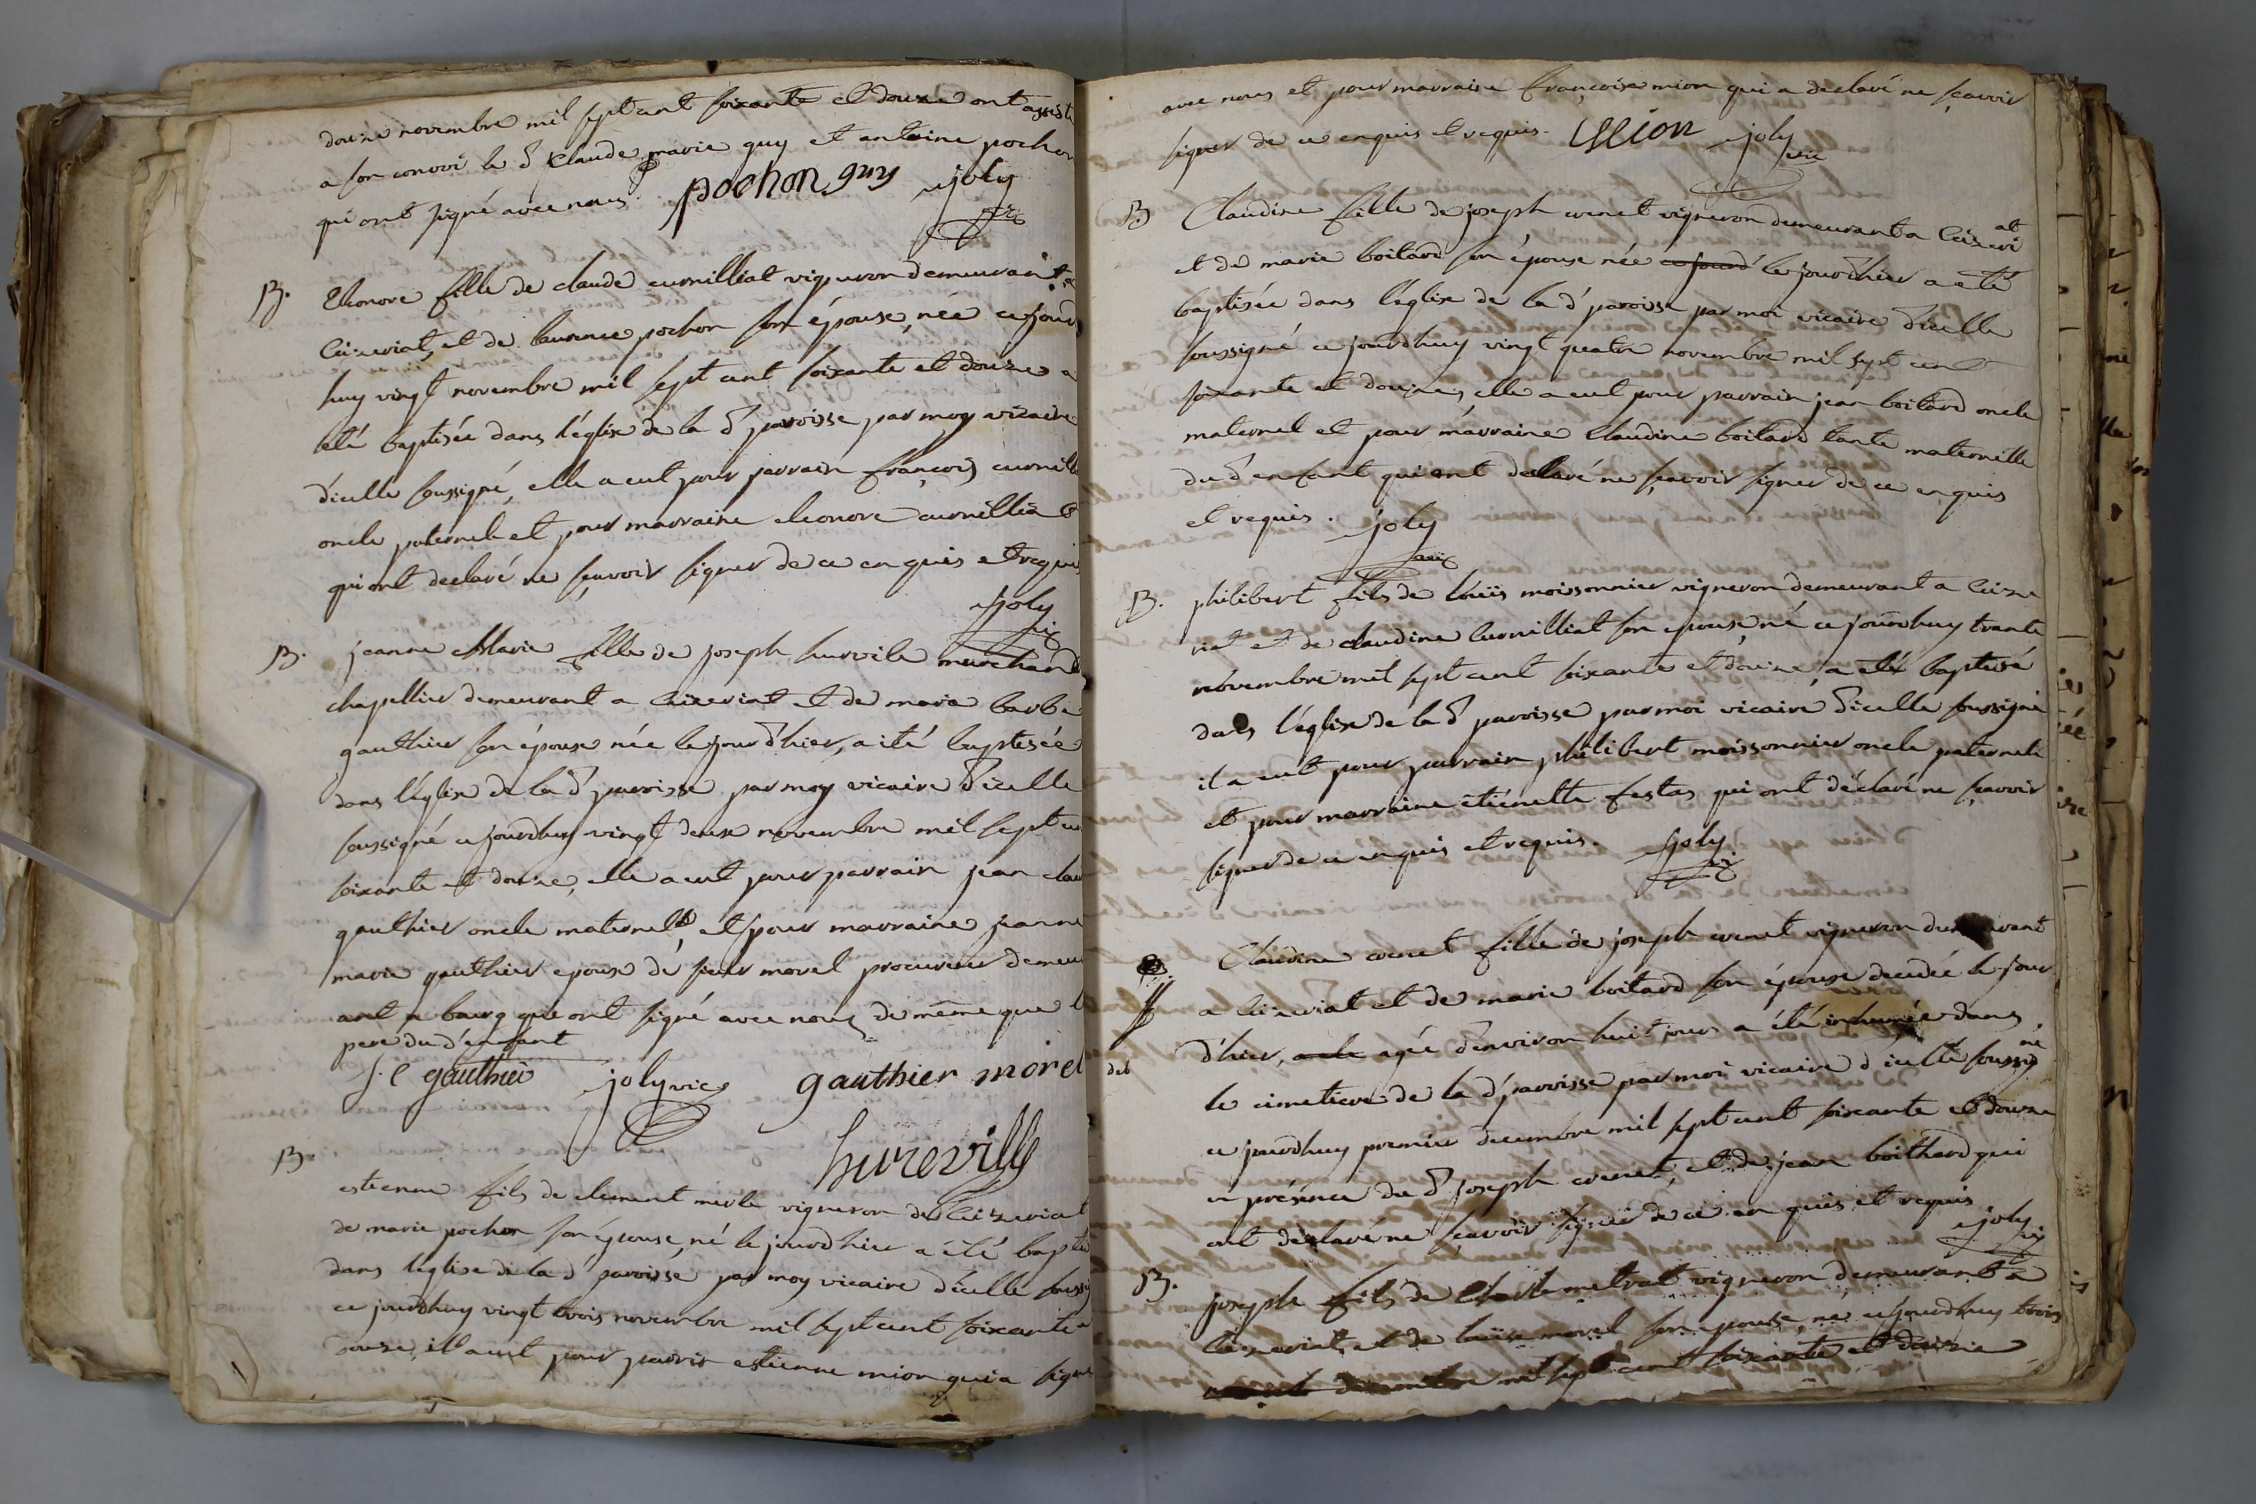 douze novembre mil sept cent soixante et douze ont assisté
a son convoi le d Claude marie guy et antoine pochon
qui ont signé avec nous. pochon guy joly
vic
B. Eleonore fille de claude curnilliat vigneron demeurant a
Ceizeriat, et de laurence pochon son épouse, née ce jourd
huy vingt novembre mil sept cent soixante et douze a
eté baptisée dans l'église de la d paroisse par moy vicaire
d'icelle soussigné, elle a eut pour parrain françois curnill
oncle paternel et pour marraine eleonore curnilliat
qui ont declaré ne sçavoir signer de ce enquis et requis
joly
vic
B. jeanne Marie fille de joseph hurvile marchand
chapellier demeurant a Ceizeriat et de marie barbe
gauthier son épouse née le jour d'hier, a été baptisée
dans l'église de la d paroisse par moy vicaire d'icelle
soussigné ce jourdhuy vingt deux novembre mil sept ce
soixante et douze, elle a eut pour parrain jean clau
gauthier oncle maternel, et pour marraine jeanne
marie gauthier epouse de sieur morel procureur demeu
ant a bourg qui ont signé avec nous de même que l
pere du d enfant
J. C gauthier joly vic gauthier morel
hureville
B. estienne fils de clement merle vigneron de Ceizeriat
de marie pochon son épouse, né le jourd'hier a été bapti
dans l'église de la d paroisse par moy vicaire d'icelle soussi
ce jourdhuy vingt trois novembre mil sept cent soixante
douze, il a eut pour parrin estienne mion qui a signé
avec nous et pour marraine françoise mion qui a declaré ne sçavoir
signer de ce enquis et requis. Mion joly
vic
B Claudine fille de joseph cuenet vigneron demeurant a Ceizeriat
et de marie boitard son épouse née ce jourd le jourd'hier a eté
baptisée dans l'église de la d paroisse par moi vicaire d'icelle
soussigné ce jourdhuy vingt quatre novembre mil sept cent
soixante et douze, elle a eut pour parrain jean boitard oncle
maternel et pour marraine Claudine boitard tante maternelle
du d enfant qui ont declaré ne sçavoir signer de ce enquis
et requis. joly
vic
B. philibert fils de louis moissonnier vigneron demeurant a Ceize
riat et de claudine Curnilliat son epouse, né ce jourdhuy trante
novembre mil sept cent soixante et douze, a eté baptisé
dans l'église de la d paroisse par moi vicaire d'icelle soussigné
il a eut pour parrain philibert moissonnier oncle paternel
et pour marraine étiénette festas qui ont déclaré ne sçavoir
signer de ce enquis et requis. joly
vic
Claudine cuenet fille de joseph cuenet vigneron demeurant
a Ceizeriat et de marie boitard son épouse decedée le jour
d'hier, agée d'environ huit jours a été inhumée dans
le cimetiere de la d paroisse par moi vicaire d'icelle soussigné
ce jourdhuy premier decembre mil sept cent soixante et douze
en présence du d joseph cuenet, et de jean boithard qui
ont déclaré ne sçavoir signer de ce enquis et requis
joly
vic
B. joseph fils de metrat vigneron demeurant a
Ceizeriat, et de louise morel son epouse, né ce jourdhuy trois
decembre mil sept cent soixante et douze